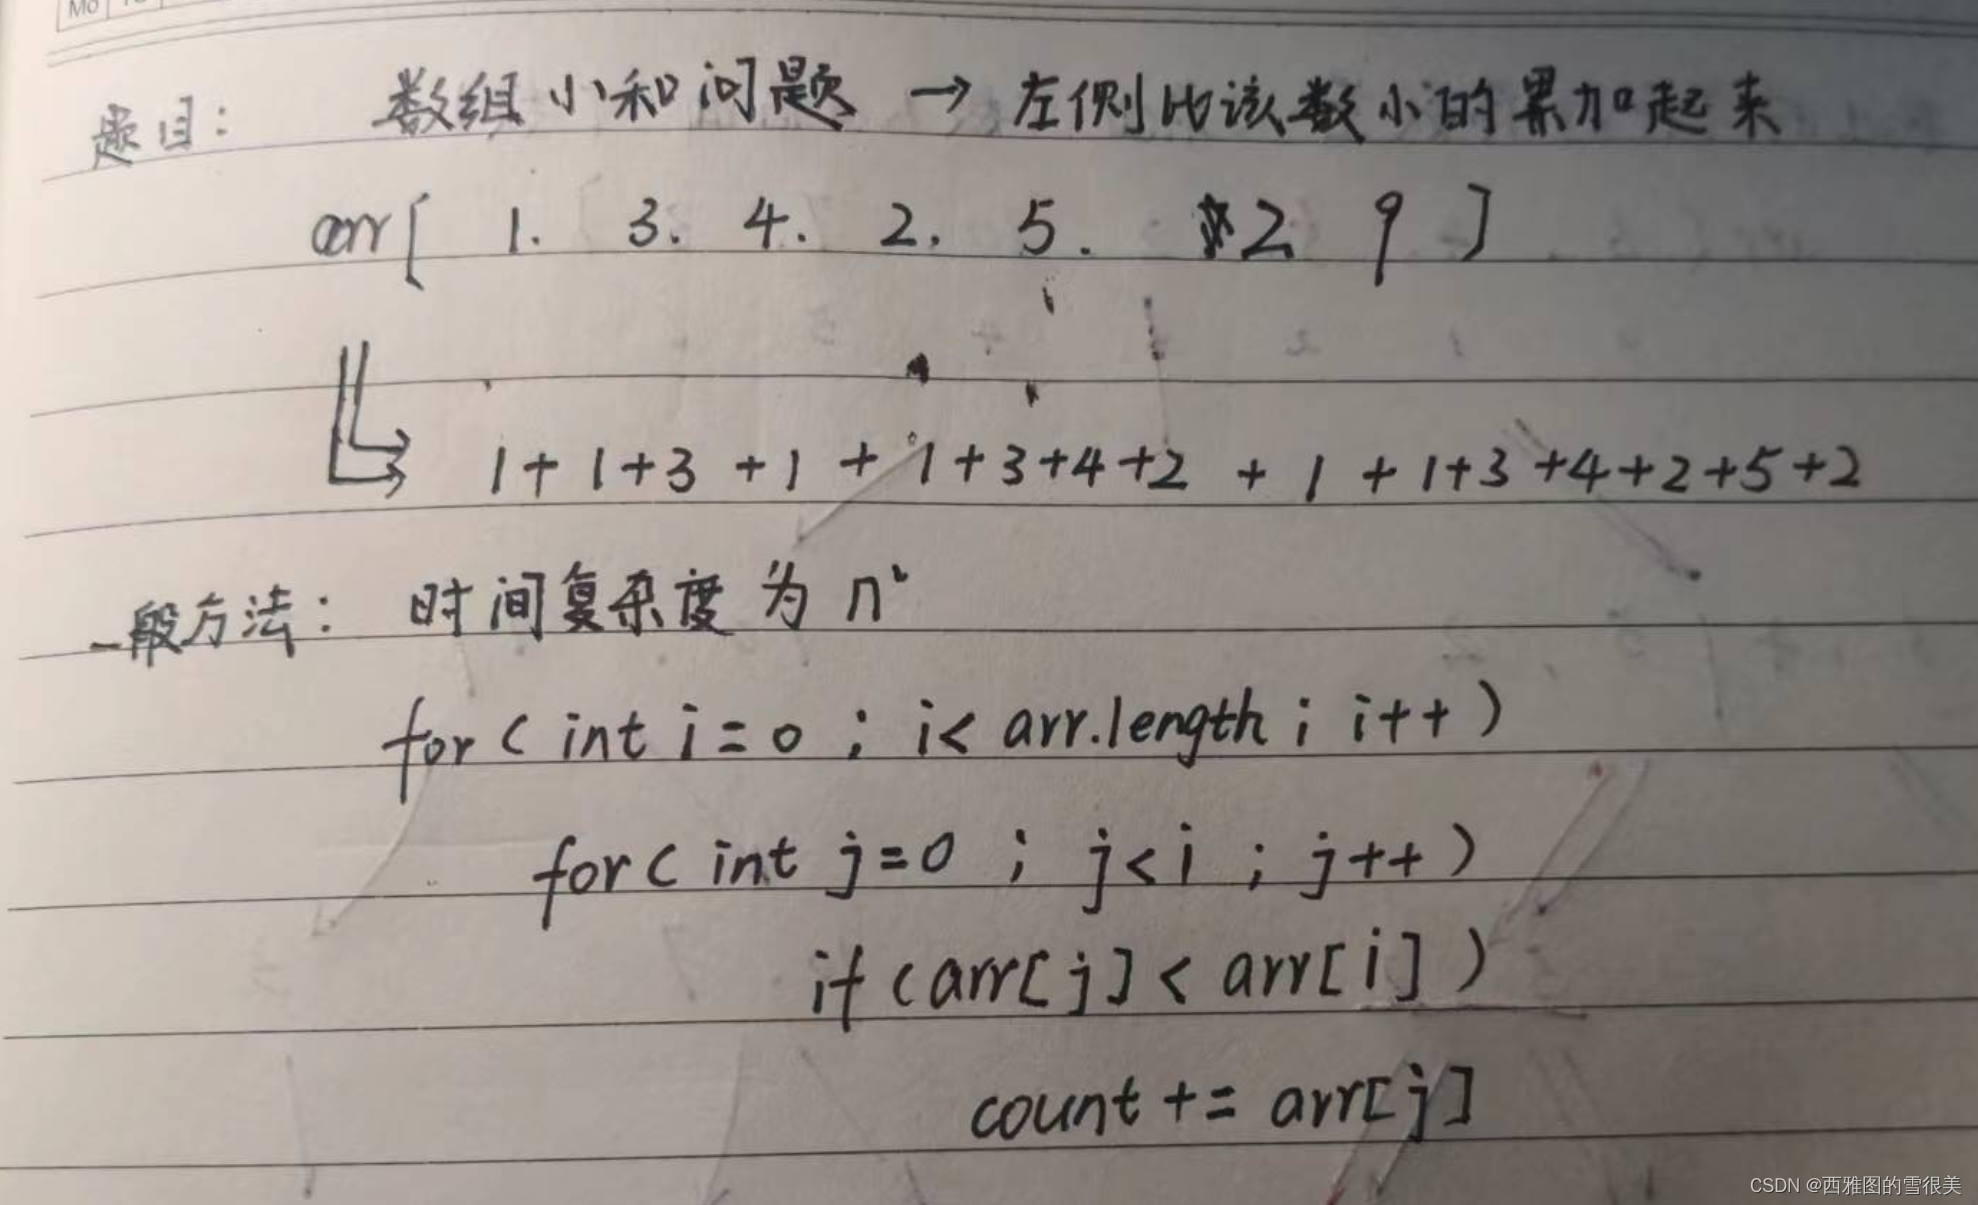 Mo
题目： 数组小和问题 → 左侧比该数小的累加起来
arr[ 1. 3. 4. 2. 5. 2 9 ]
1+ 1+3 +1 + 1+3+4+2 + 1 + 1+3+4+2+5+2
一般方法： 时间复杂度为 n²
for ( int i = 0 ; i < arr.length ; i++ )
for ( int j=0 ; j<i ; j++ )
if (arr[j] < arr[i] )
count += arr[j]
CSDN @西雅图的雪很美